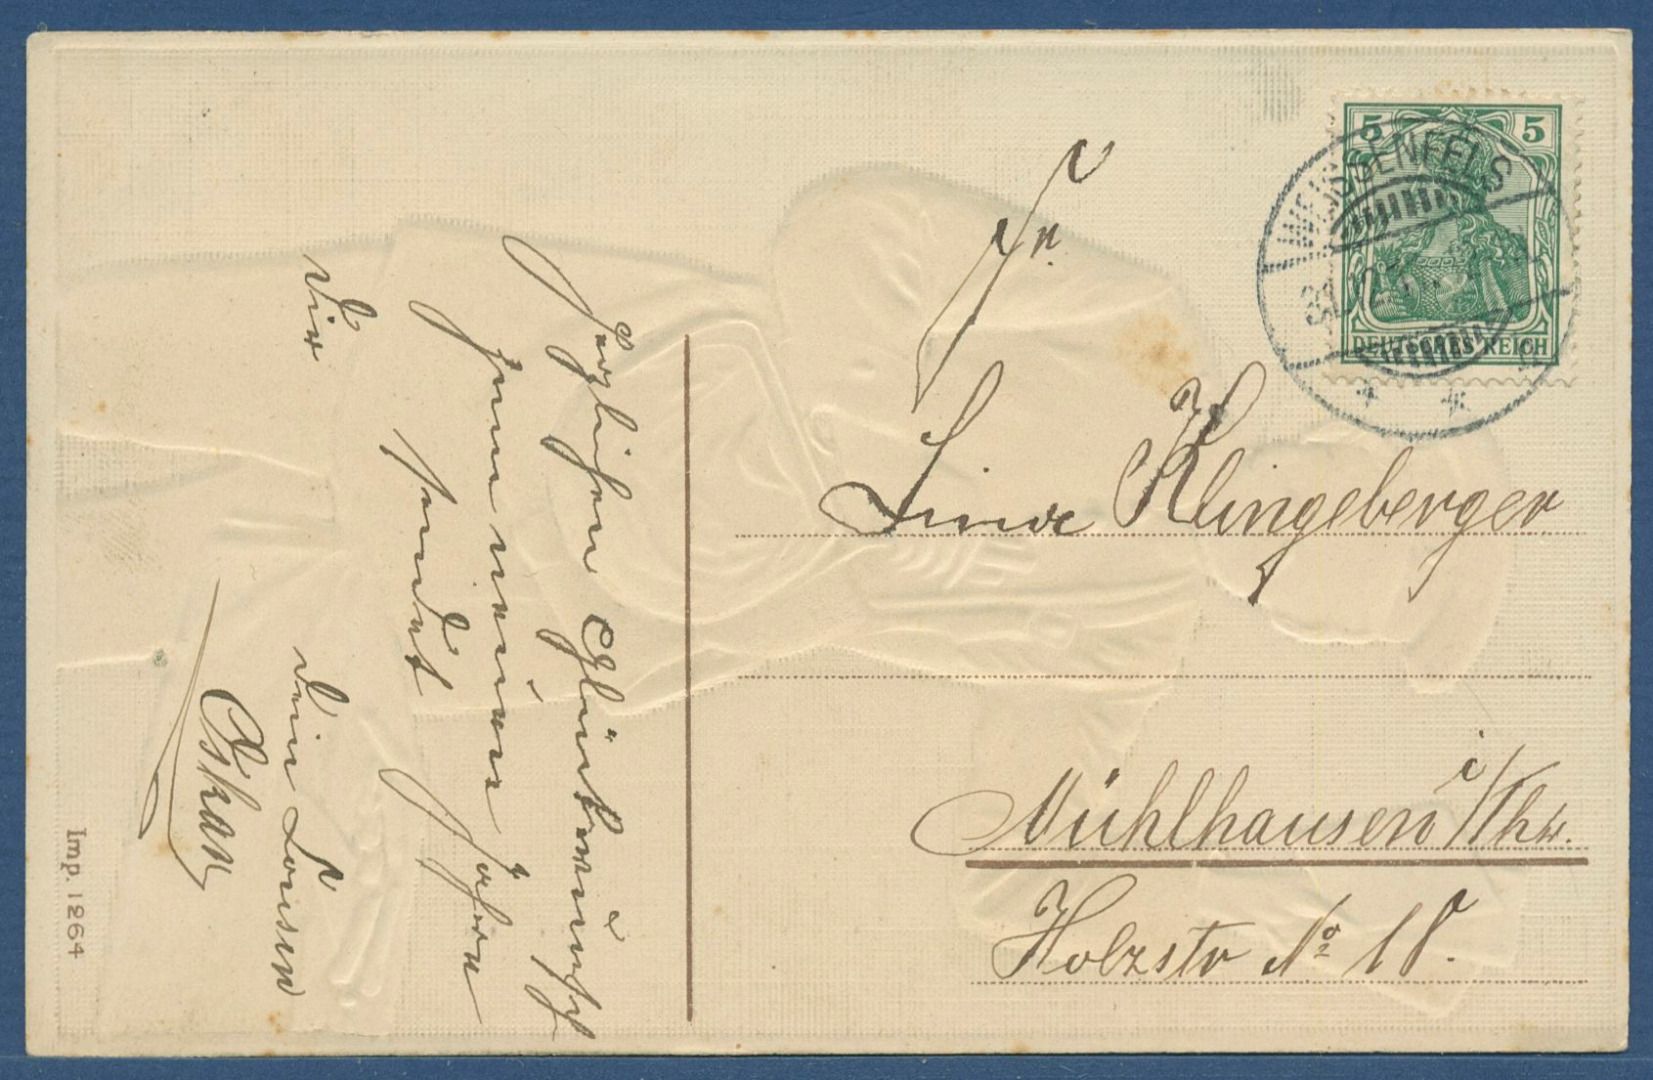 Herzlichen Glückwunsch
zum neuen Jahre
sendet
Dir
Dein
Oskar
Imp. 1264
5 5
DEUTSCHES REICH
WEISSENFELS
Frl.
Klingeberger
Mühlhausen i/Thür.
Holzstr № 18.